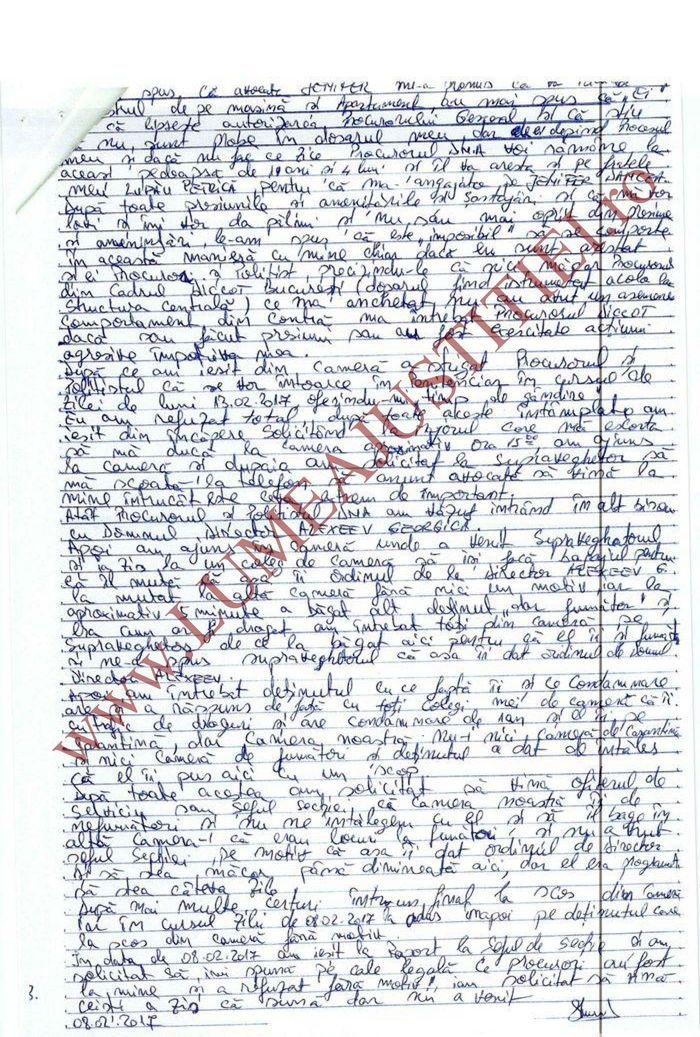 spus că avocata JENIFER mi-a promis că va
de pe masină si Apartamentul, au mai spus că „Ei
că lipseste autorizarea Procurorului General, si că stiu
că nu sunt probe în dosarul meu, dar depind Procesul
meu si dacă nu fac ce zice Procurorul DNA voi rămâne la
aceasi pedeapsă de ani si 4 luni si îl va aresta si pe fratele
meu LUPIU PETRICĂ, pentru că m-a angajat pe JENIFER
După toate presiunile si amenintările si santajări si că mă vor
lovi si îmi vor da palmi si nu s-au mai oprit din presiune
si amenintări, le-am spus că este „imposibil" să se comporte
în această manieră cu mine chiar dacă eu sunt arestat
si ei Procurori si Politist, precizindu-le că nici măcar Procurorul
din Cadrul DIICOT Bucuresti (dosarul fiind instrumentat acolo la
Structura centrală) ce m-a anchetat, nu au avut un asemenea
comportament din contră m-a întrebat Procurorul DIICOT
dacă s-au făcut presiuni sau au fost exercitate actiuni
agresive împotriva mea.
După ce am iesit din cameră a strigat Procurorul si
politistul că se vor întoarce în Penitenciar în cursul
zilei de luni 13.02.2017 oferindu-mi timp de gândire.
Eu am refuzat total, după toate aceste întâmplate am
iesit din încăpere solicitând la care mă escorta
să mă ducă la camera aproximativ ora 15:00 am ajuns
la cameră si dupaia am solicitat la supraveghetor să
mă scoată la telefon să anunt avocata să vină la
mine întrucât este ceva extrem de important.
Atât Procurorul si Politistul DNA am văzut intrând în alt birou
cu Domnul Director ALEXEEV GEORGICĂ.
Apoi am ajuns în cameră unde a venit Supraveghetorul
si ia zis la un coleg de cameră să îsi facă bagajul pentru
că îl mută că asa îi ordinul de la Director ALEXEEV G.
la mutat la altă cameră fără nici un motiv iar la
aproximativ 5 minute a băgat alt detinut „dar fumător" si
am întrebat toti din cameră pe
Supraveghetor de ce la băgat aici pentru că el îi si fumător
si ne-a spus supraveghetorul că asa îi dat ordinul de Domul
Director ALEXEEV.
Apoi am întrebat detinutul cu ce faptă îi si ce condamnare
are si a răspuns de fată cu toti colegi mei de cameră că îi
cu trafic de droguri si are condamnare de ani si el îi pe
carantină, dar camera noastră nu-i nici cameră de carantină
si nici cameră de fumători si detinutul a dat de înteles
că el îi pus aici cu un scop
După toate acestea am solicitat să vină ofiterul de
serviciu sau seful sectiei, că camera noastră îi de
nefumători si nu ne întelegem cu el si să îl bage în
altă cameră-i că erau locuri la fumători, si nu a vrut
seful Sectiei, pe motiv că asa îi dat ordinul de Director
si să stea măcar până dimineată aici, dar el era programat
să stea câteva zile
După mai multe certuri într-un final la scos din cameră
iar în cursul zilei de 08.02.2017 la adus inapoi pe detinutul care
la scos din cameră fără motiv.
În data de 08.02.2017 am iesit la raport la seful de sectie si am
solicitat să îmi spună pe cale legală ce procurori au fost
la mine si a refuzat fără motiv, iam solicitat să vină
a zis că sună dar nu a venit
3.
08.02.2017
www.LUMEAJUSTITIEI.ro